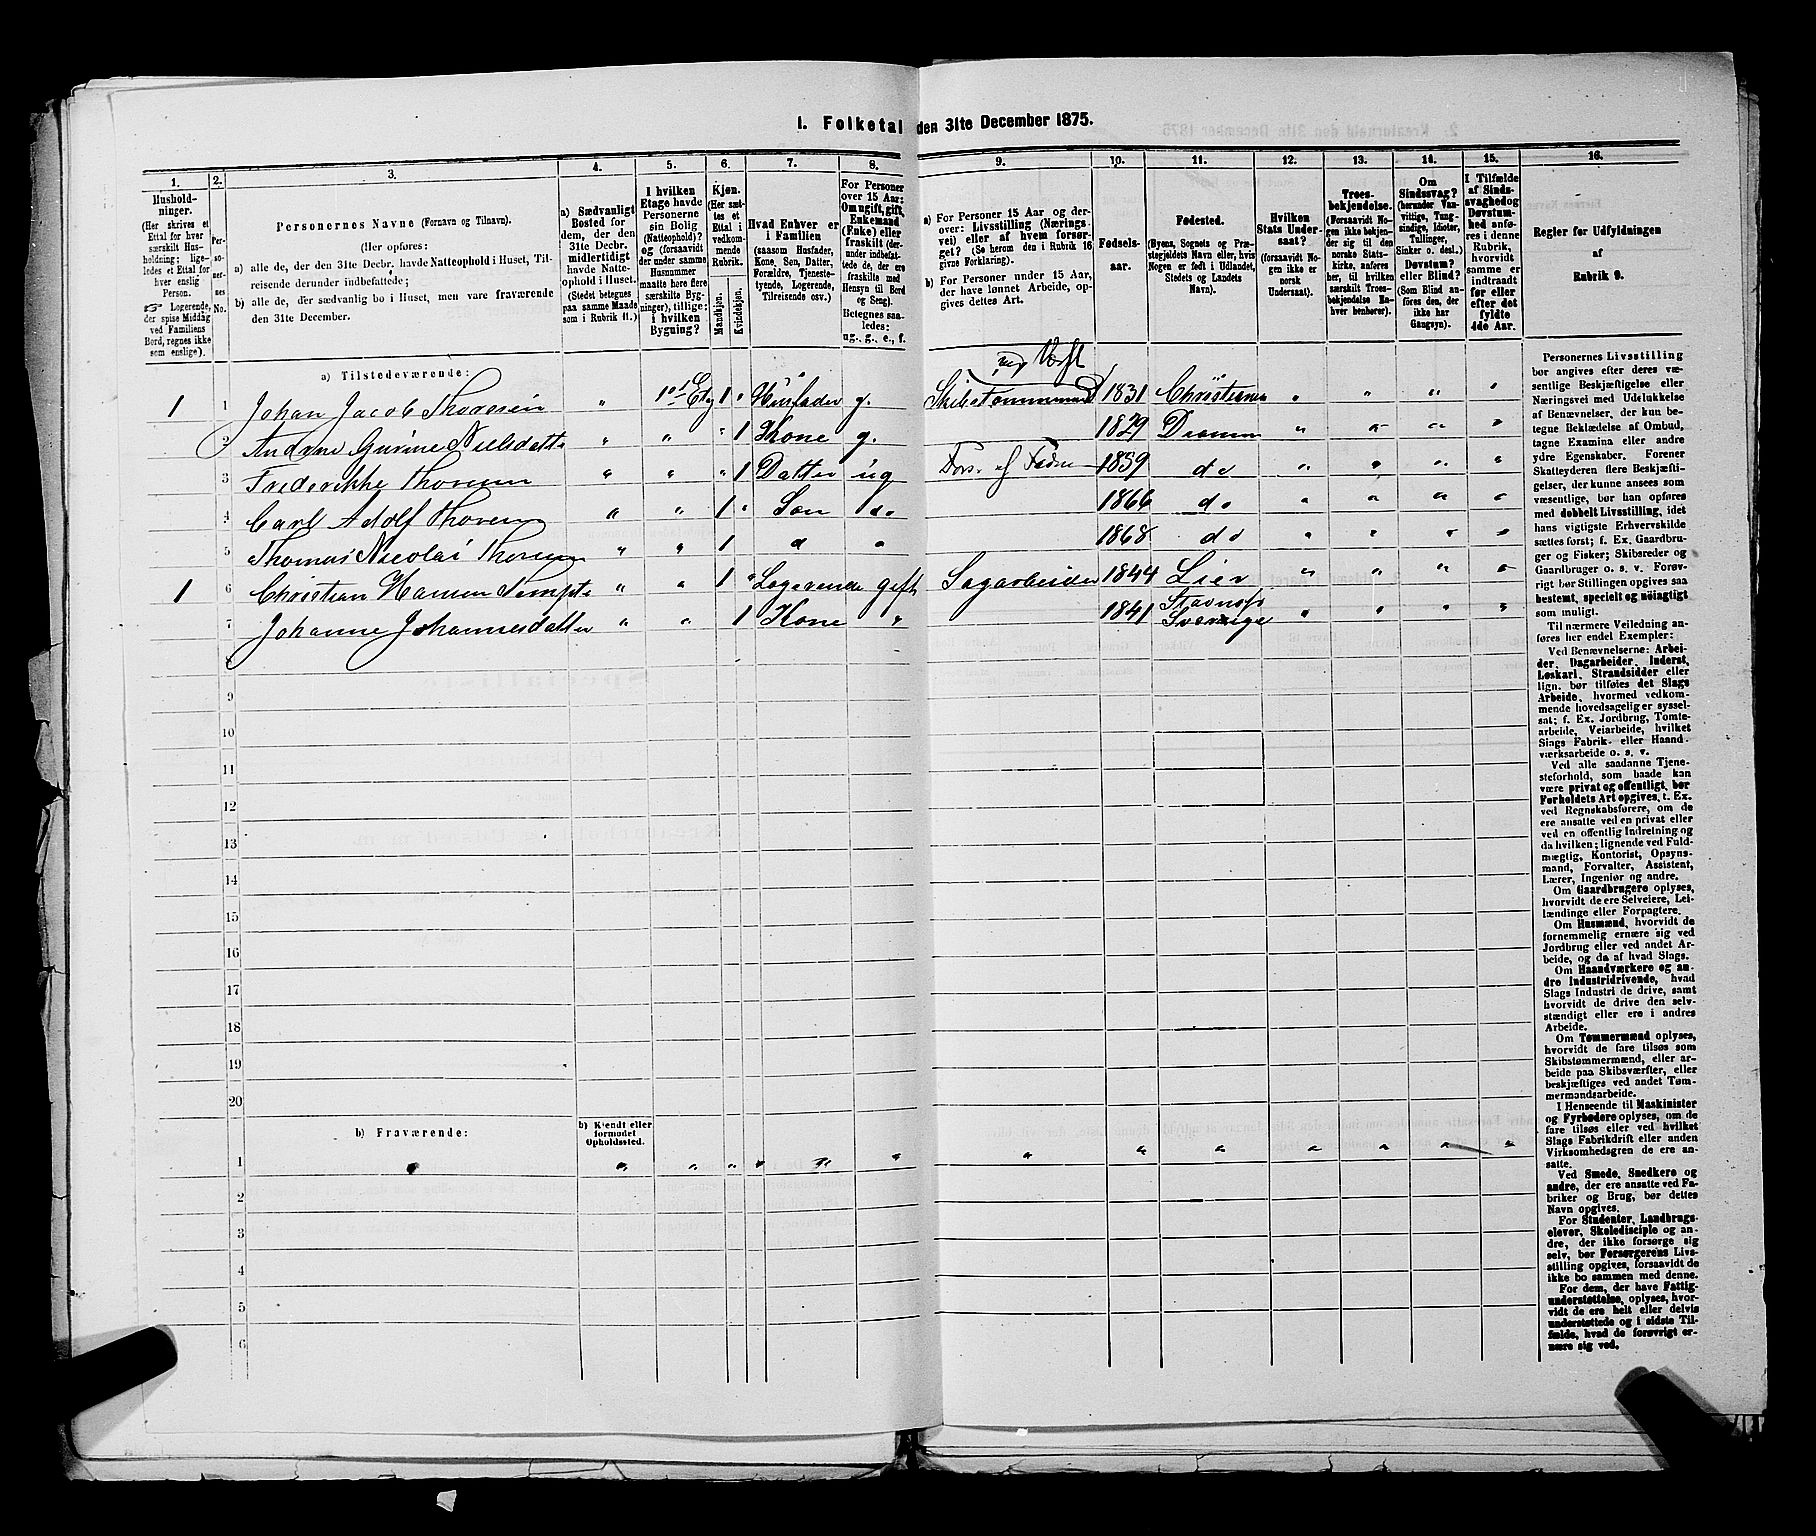 1. Folketal den 31te December 1875.
1. 2. 3. 4. 5. 6. 7. 8. 9. 10. 11. 12. 13. 14. 15. 16.
Husholdninger.
(Her skrives et Ettal for hver særskilt Husholdning; ligeledes et Ettal for hver enslig Person.
Logerende, der spise Middag ved Familiens Bord, regnes ikke som enslige).
Personernes No.
Personernes Navne (Fornavn og Tilnavn).
(Her opføres:
a) alle de, der den 31te Decbr. havde Natteophold i Huset, Tilreisende derunder indbefattede;
b) alle de, der sædvanlig bo i Huset, men vare fraværende den 31te December.
a) Sædvanligt Bosted for dem, der den 31te Decbr. midlertidigt havde Natteophold i Huset.
(Stedet betegnes paa samme Maade som i Rubrik 11.)
I hvilken Etage havde Personerne sin Bolig (Natteophold)? og (forsaavidt der under samme Husnummer maatte høre flere særskilte Bygninger), tillige: i hvilken Bygning?
Kjøn.
(Her sættes et Ettal i vedkommende Rubrik.
Mandkjøn. Kvindekjøn.
Hvad Enhver er i Familien
(saasom Husfader, Kone, Søn, Datter, Forældre, Tjenestetyende, Logerende, Tilreisende osv.)
For Personer over 15 Aar: Om ugift, gift, Enkemand (Enke) eller fraskilt (derunder indbefattede de, der ere fraskilte med Hensyn til Bord og Seng).
Betegnes saaledes: ug., g., e., f.
a) For Personer 15 Aar og derover: Livsstilling (Næringsvei) eller af hvem forsørget? (Se herom den i Rubrik 16 givne Forklaring).
b) For Personer under 15 Aar, der have lønnet Arbeide, opgives dettes Art.
Fødselsaar.
Fødested.
(Byens, Sognets og Præstegjeldets Navn eller, hvis Nogen er født i Udlandet, Stedets og Landets Navn).
Hvilken Stats Undersaat?
(forsaavidt Nogen ikke er norsk Undersaat).
Troesbekjendelse.
(Forsaavidt Nogen ikke bekjender sig til den norske Statskirke, anføres her, til hvilken særskilt Troesbekjendelse Enhver henhører).
Om Sindssvag? (herunder Vanvittige, Tungsindige, Idioter, Tullinger, Sinker o. desl.). Døvstum? eller Blind?
(Som Blind anføres den, der ikke har Gangsyn).
I Tilfælde af Sindssvaghed og Døvstumhed anføres i denne Rubrik, hvorvidt samme er indtraadt før eller efter det fyldte 4de Aar.
Regler for Udfyldningen af Rubrik 9.
a) Tilstedeværende:
1 1 Johan Jacob Thoresen " 1ste Etg 1 " Husfader g. Skibstømmermand ved Værft 1831 Christiania " " " "
2 Andrine Gurine Nielsdatte " " " 1 Kone g. 1829 Dramm " " " "
3 Frederikke Thoresen " " " 1 Datter ug Fors. af Fadren 1859 do " " " "
4 Carl Adolf Thoresen " " 1 " Søn do 1866 do " " " "
5 Thomas Nicolai Thoresen " " 1 " " 1868 do " " " "
1 6 Christian Hansen " " 1 " Logerende gift Sagarbeider 1844 Lier " " " "
7 Johanne Johannesdatter " " 1 Kone " 1841 Sverrige " " " "
8
9
10
11
12
13
14
15
16
17
18
19
20
b) Fraværende:
b) Kjendt eller formodet Opholdssted.
1 " " " " " " " " " " " " " "
2
3
4
5
6
Personernes Livsstilling
bør angives efter deres væ-
sentlige Beskjæftigelse eller
Næringsvei med Udelukkelse
af Benævnelser, der kun be-
tegne Beklædelse af Ombud,
tagne Examina eller andre
ydre Egenskaber. Forener
Skatteyderen flere Beskjæfti-
gelser, der kunne ansees som
væsentlige, bør han opføres
med dobbelt Livsstilling, idet
hans vigtigste Erhvervskilde
sættes først; f. Ex. Gaardbru-
ger og Fisker; Skibsreder og
Gaardbruger o. s. v. Forøv-
rigt bør Stillingen opgives saa
bestemt, specielt og nøiagtigt
som muligt.
Til nærmere Veiledning an-
føres her endel Exempler:
Ved Benævnelserne: Arbei-
der, Dagarbeider, Inderst,
Løskarl, Strandsidder eller
lign. bør tilføies det Slags
Arbeide, hvormed vedkom-
mende hovedsagelig er syssel-
sat; f. Ex. Jordbrug, Tomte-
arbeide, Veiarbeide, hvilket
Slags Fabrik- eller Haand-
værksarbeide o. s. v.
Ved alle saadanne Tjene-
steforhold, som baade kan
være privat og offentligt, bør
Forholdets Art opgives, t. Ex.
ved Regnskabsførere, om de
ere ansatte ved en privat eller
ved en offentlig Indretning og
da hvilken; lignende ved Fuld-
mægtig, Kontorist, Opsyns-
mand, Forvalter, Assistent,
Lærer, Ingeniør og andre.
Om Gaardbrugere oplyses,
hvorvidt de ere Selveiere, Lei-
lændinge eller Forpagtere.
Om Husmænd, hvorvidt de
fornemmelig ernære sig ved
Jordbrug eller ved andet Ar-
beide, og da af hvad Slags.
Om Haandværkere og an-
dre Industridrivende, hvad
Slags Industri de drive, samt
hvorvidt de drive den selv-
stændigt eller ere i andres
Arbeide.
Om Tømmermænd oplyses,
hvorvidt de fare tilsøs som
Skibstømmermænd, eller ar-
beide paa Skibsværfter, eller
beskjæftiges ved andet Tøm-
mermandsarbeide.
I Henseende til Maskinister
og Fyrbødere oplyses, om de
fare tilsøs eller ved hvilket
Slags Fabrikdrift eller anden
Virksomhedsgren de ere an-
satte.
Ved Smede, Snedkere og
andre, der ere ansatte ved Fa-
briker og Brug, bør dettes
Navn opgives.
For Studenter, Landbrugs-
elever, Skoledisciple og an-
dre, der ikke forsørge sig
selv, bør Forsørgerens Livs-
stilling opgives, forsaavidt de
ikke bo sammen med denne.
For dem, der have Fattig-
understøttelse, oplyses, hvor-
vidt de ere helt eller delvis
understøttede og i sidste Til-
fælde, hvad de forøvrigt er-
nære sig ved.